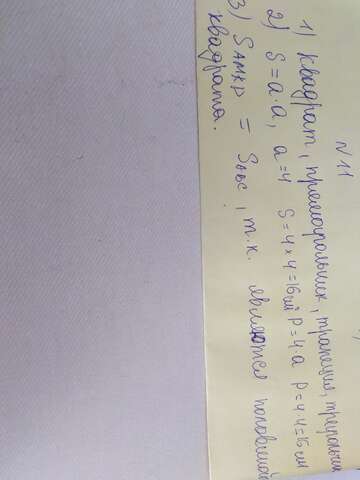 №11
1) Квадрат, прямоугольник, трапеция, треугольник
2) S=a·a, a=4 S=4×4=16см² P=4·a P=4·4=16см
3) SАМКD = SАВС, т.к. являются половиной
квадрата.